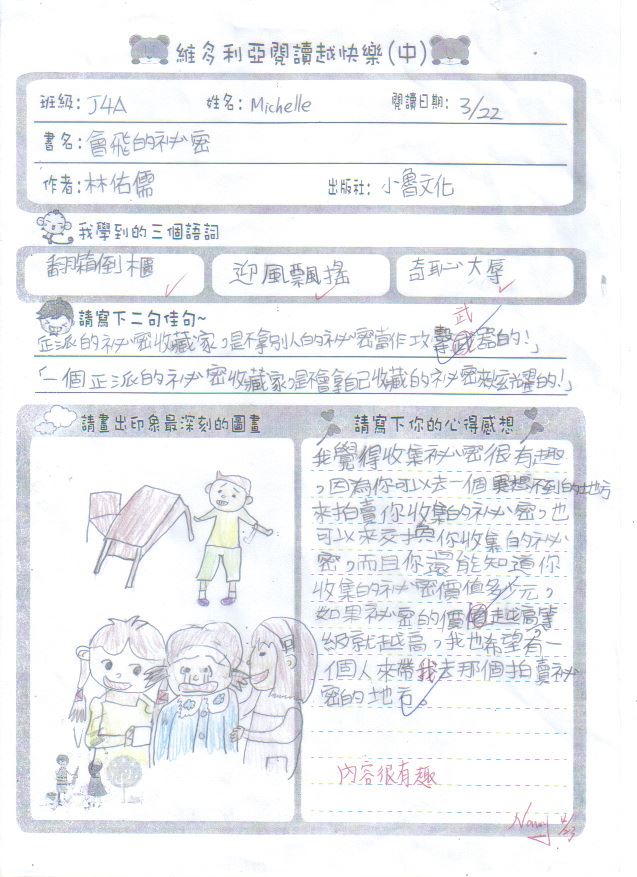 維多利亞閱讀越快樂(中)
班級: J4A 姓名: Michelle 閱讀日期: 3/22
書名: 會飛的祕密
作者: 林佑儒 出版社: 小魯文化
我學到的三個語詞
翻箱倒櫃 迎風飄搖 奇恥大辱
請寫下二句佳句~
武
正派的祕密收藏家,是不拿別人的祕密當作攻擊器的!」
「一個正派的祕密收藏家,是不會拿自己收藏的祕密來炫耀的!」
請畫出印象最深刻的圖畫
請寫下你的心得感想
我覺得收集祕密很有趣
,因為你可以去一個異想不到的地方
來拍賣你收集的祕密,也
可以來交換你收集的祕
密,而且你還能知道你
收集的祕密價值多少元。
如果祕密的價值越高等
級就越高,我也希望有一
個人來帶我去那個拍賣祕
密的地方。
內容很有趣
Nancy 4/23